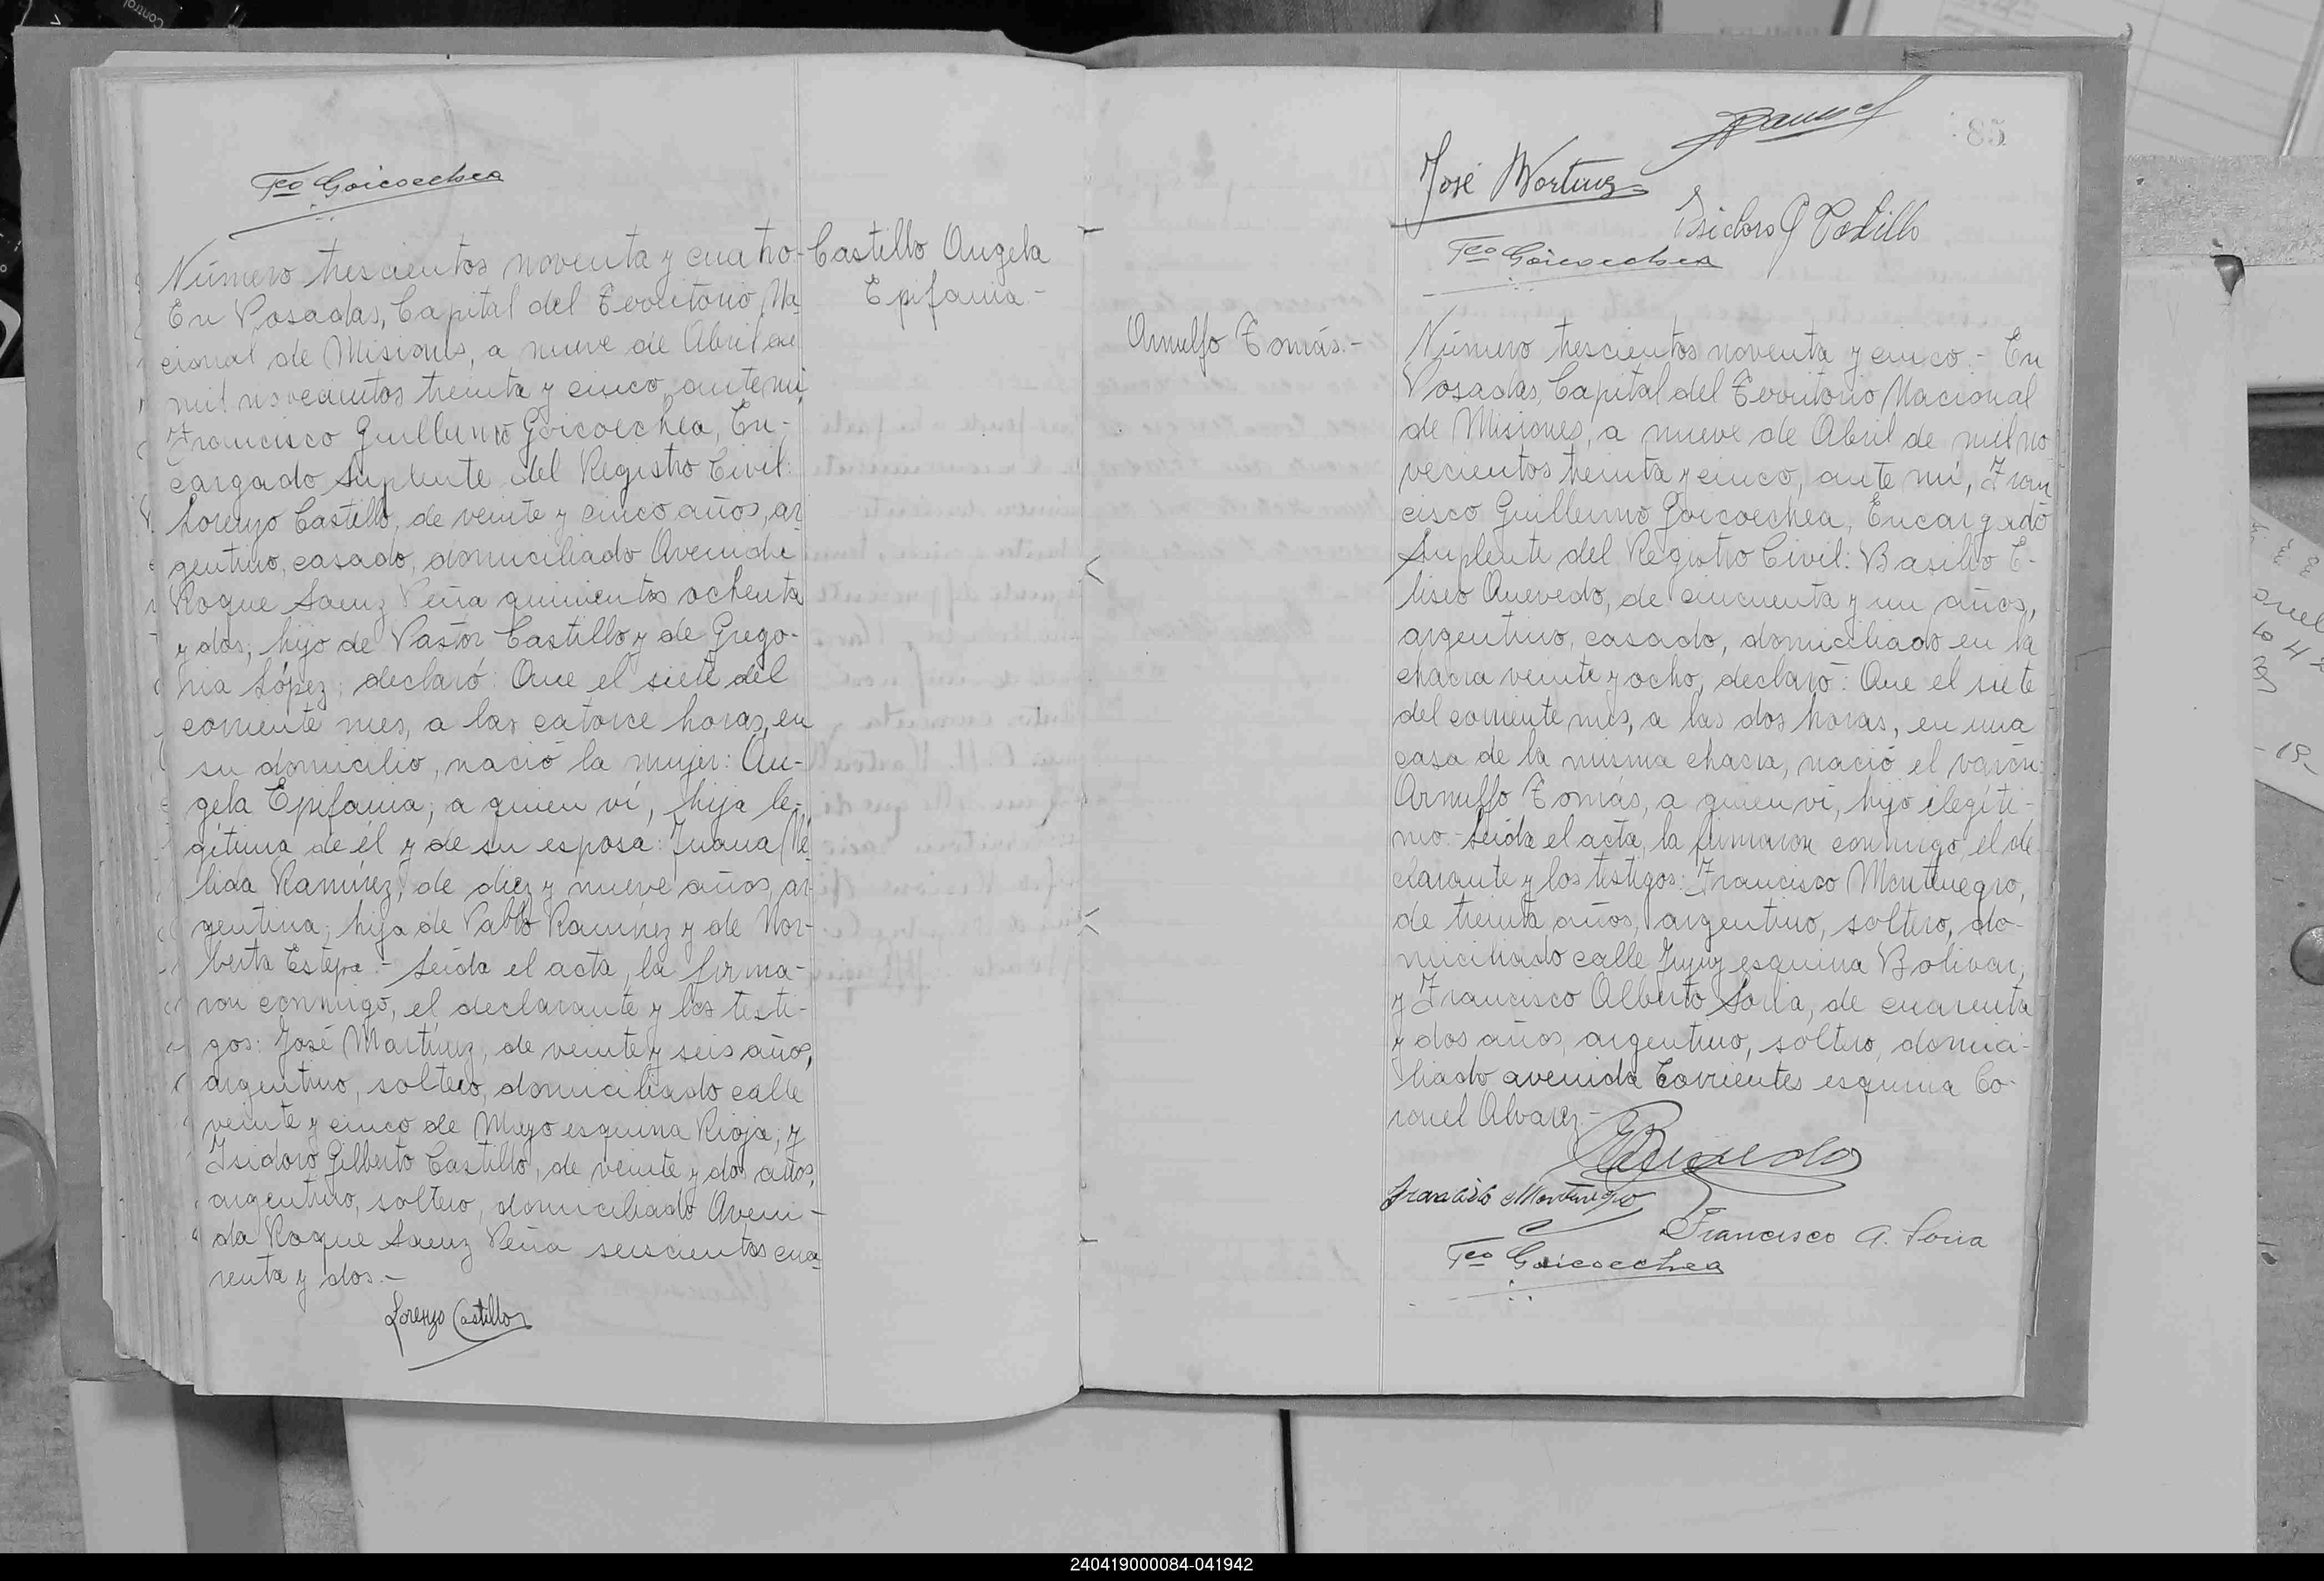 Fco Goicoechea
Número trescientos noventa y cuatro-
En Posadas, Capital del Territorio Na
cional de Misiones, a nueve de Abril de
mil novecientos treinta y cinco, ante mi,
Francisco Guillermo Goicoechea, En-
cargado Suplente del Registro Civil:
Lorenzo Castillo, de veinte y cinco años, ar
gentino, casado, domiciliado Avenida
Roque Saenz Peña quinientos ochenta
y dos, hijo de Pastor Castillo y de Grego-
ria López; declaró: Que el siete del
corriente mes, a las catorce horas, en
su domicilio, nació la mujer: An-
gela Epifania, a quien ví, hija le-
gítima de él y de su esposa: Juana Né-
lida Ramírez, de diez y nueve años, ar
gentina, hija de Pablo Ramírez y de Nor-
berta Estepa.- Leída el acta, la firma-
ron conmigo, el declarante y los testi-
gos: José Martínez, de veinte y seis años,
argentino, soltero, domiciliado calle
veinte y cinco de Mayo esquina Rioja, y
Isidoro Gilberto Castillo, de veinte y dos años,
argentino, soltero, domiciliado Aveni-
da Roque Saenz Peña seiscientos cua
renta y dos.-
Lorenzo Castillo
Castillo Angela
Epifania-
85
José Martinez
Isidoro G Castillo
Fco Goicoechea
Arnulfo Tomás.-
Número trescientos noventa y cinco.- En
Posadas, Capital del Territorio Nacional
de Misiones, a nueve de Abril de mil no
vecientos treinta y cinco, ante mí, Fran
cisco Guillermo Goicoechea, Encargado
Suplente del Registro Civil: Basilio E-
liseo Quevedo, de cincuenta y un años,
argentino, casado, domiciliado en la
chacra veinte y ocho, declaró: Que el siete
del corriente mes, a las dos horas, en una
casa de la misma chacra, nació el varón:
Arnulfo Tomás, a quien ví, hijo ilegíti-
mo.- Leída el acta, la firmaron conmigo, el de
clarante y los testigos: Francisco Montenegro,
de treinta años, argentino, soltero, do-
miciliado calle Jujuy esquina Bolivar,
y Francisco Alberto Soria, de cuarenta
y dos años, argentino, soltero, domici-
liado avenida Corrientes esquina Co-
ronel Alvarez.-
Francisco Montenegro
Francisco A. Soria
Fco Goicoechea
240419000084-041942